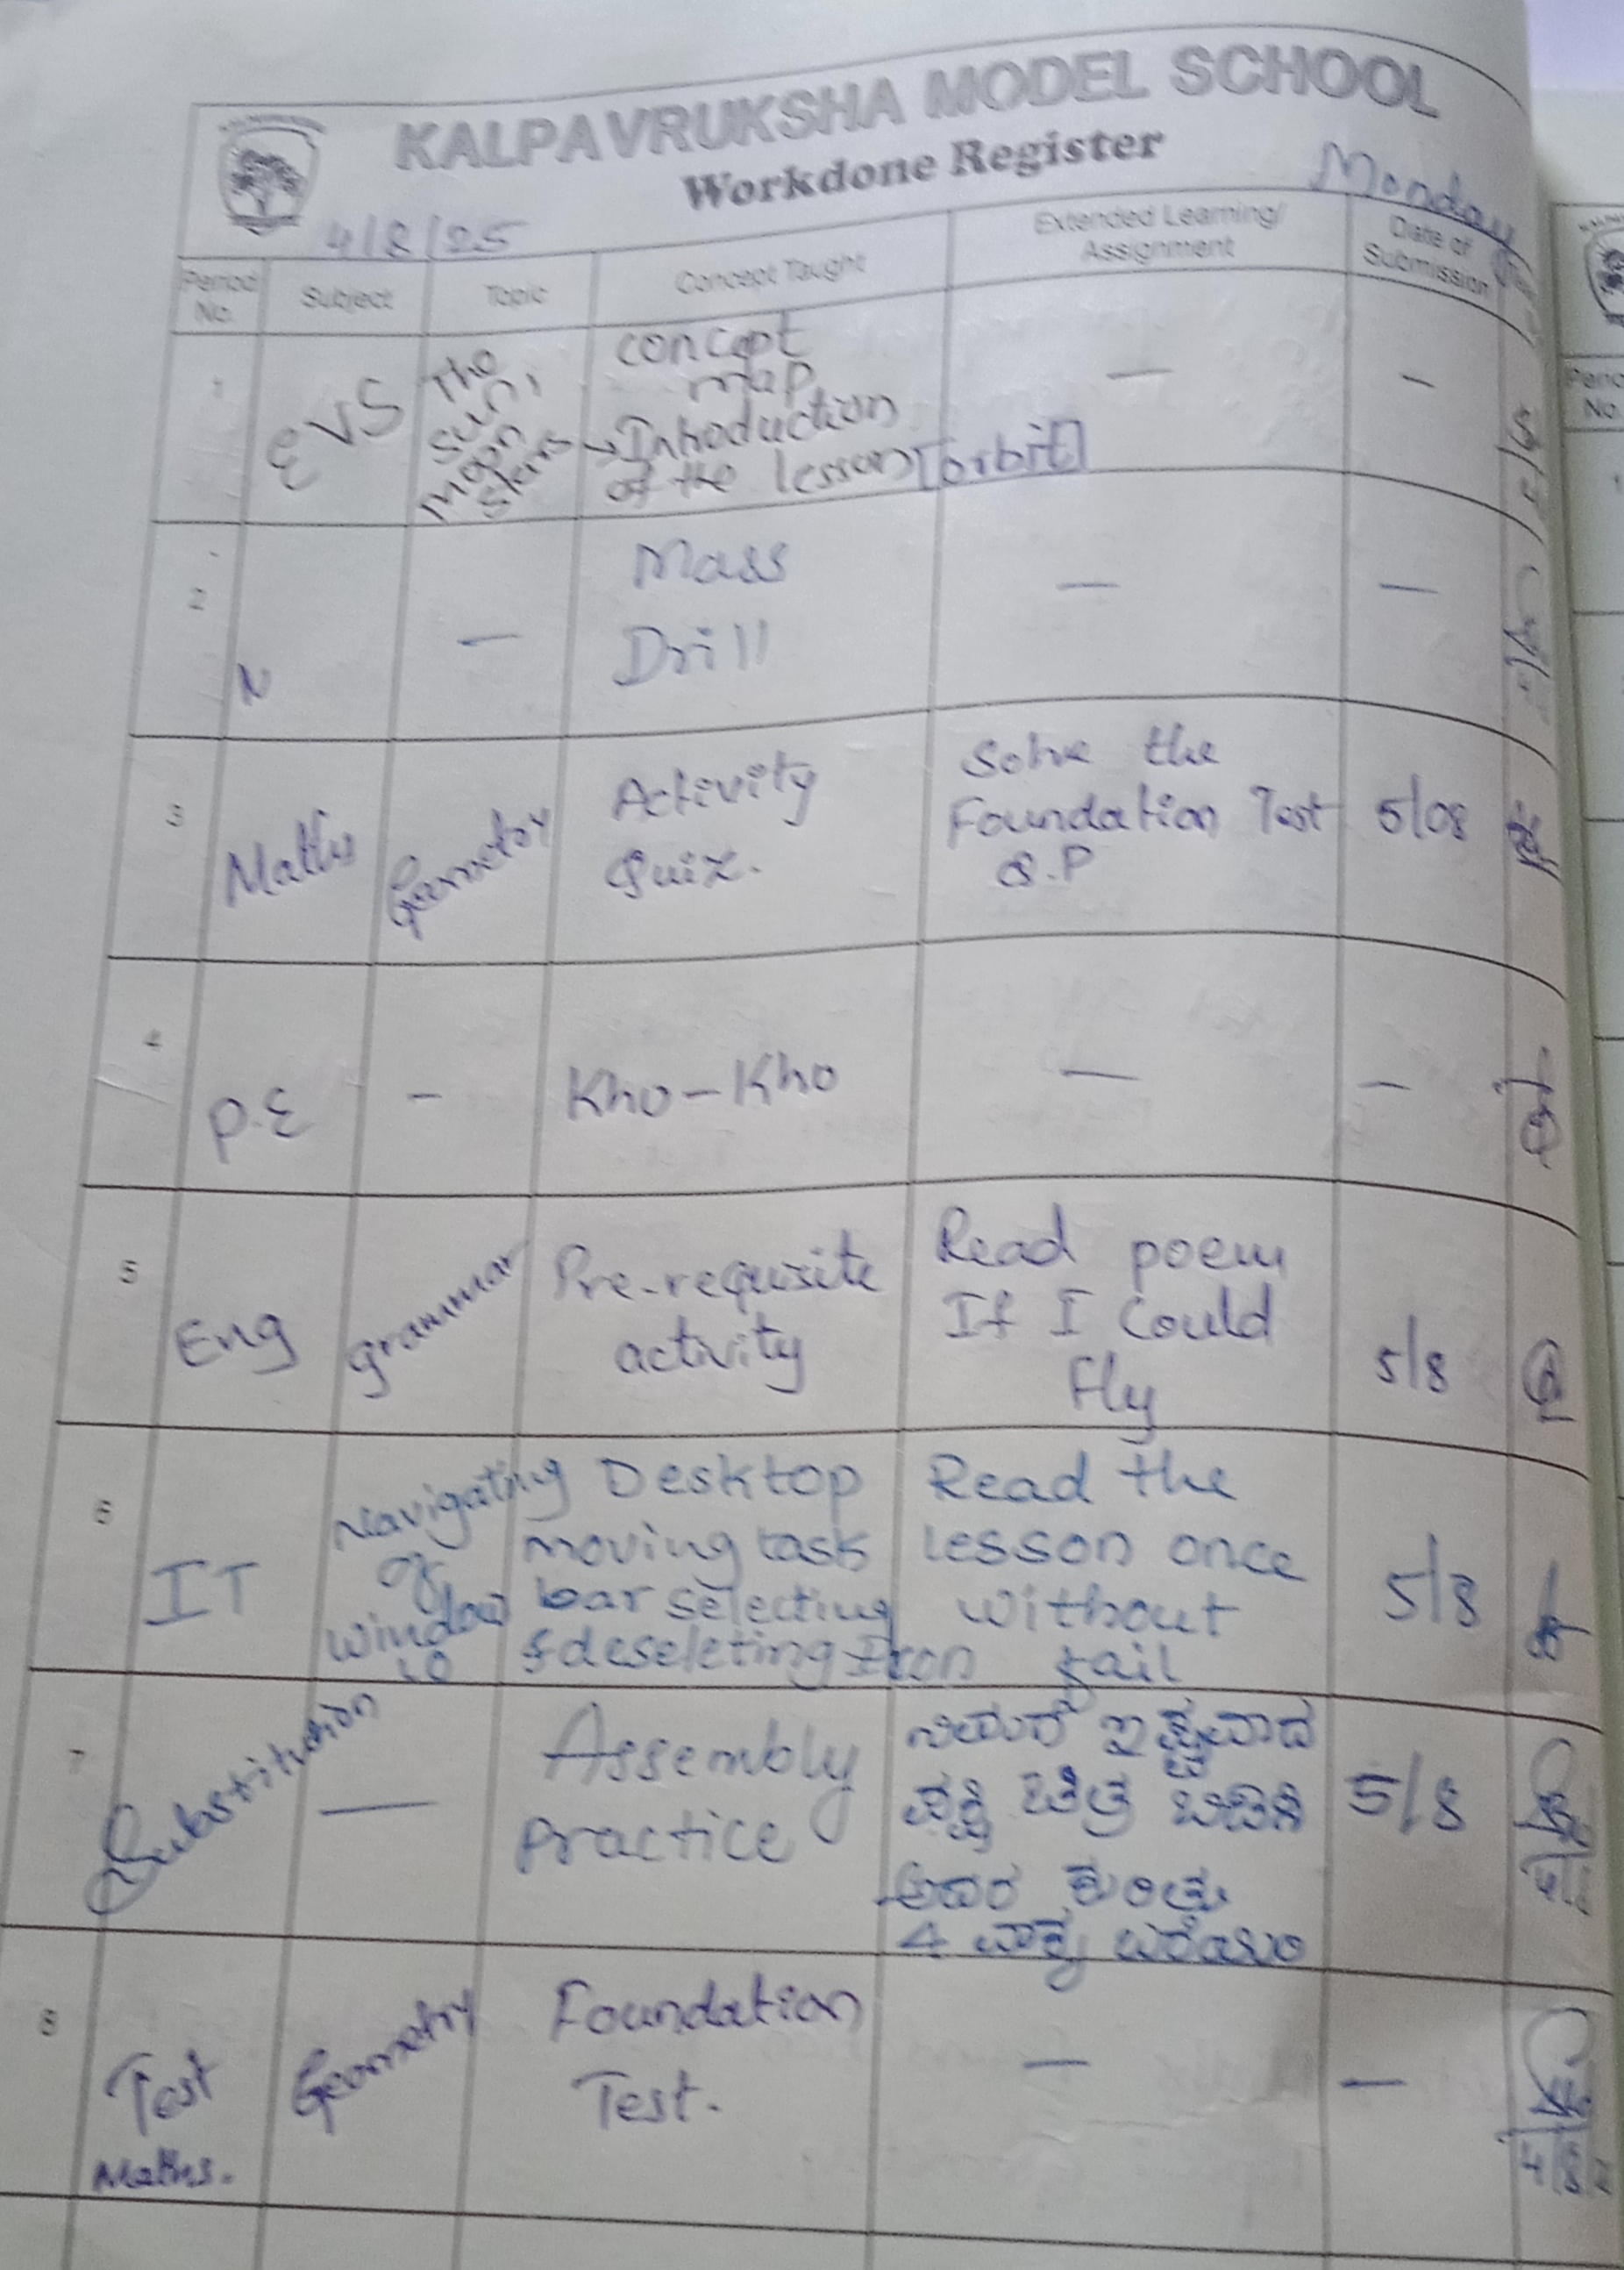 KALPAVRUKSHA MODEL SCHOOL
Workdone Register
4/8/25 Monday
Period No. Subject Topic Concept Taught Extended Learning/ Assignment Date of Submission
1 EVS The Sun, moon stars concept map → Introduction of the lesson [orbit] — –
2 N — Mass Drill — —
3 Maths Geometry Activity Quiz. Solve the Foundation Test Q.P 5/08
4 P.E – Kho-Kho — —
5 Eng grammar Pre-requisite activity Read poem If I Could Fly 5/8
6 IT Navigating of window 10 Desktop moving task bar selecting & deseleting Icon Read the lesson once without fail 5/8
7 Substitution — Assembly practice ನಿಮಗೆ ಇಷ್ಟವಾದ ಪಕ್ಷಿ ಚಿತ್ರ ಬಿಡಿಸಿ ಅದರ ಕುರಿತು 4 ವಾಕ್ಯ ಬರೆಯಿರಿ 5/8
8 Test Maths. Geometry Foundation Test. — —
Period No.